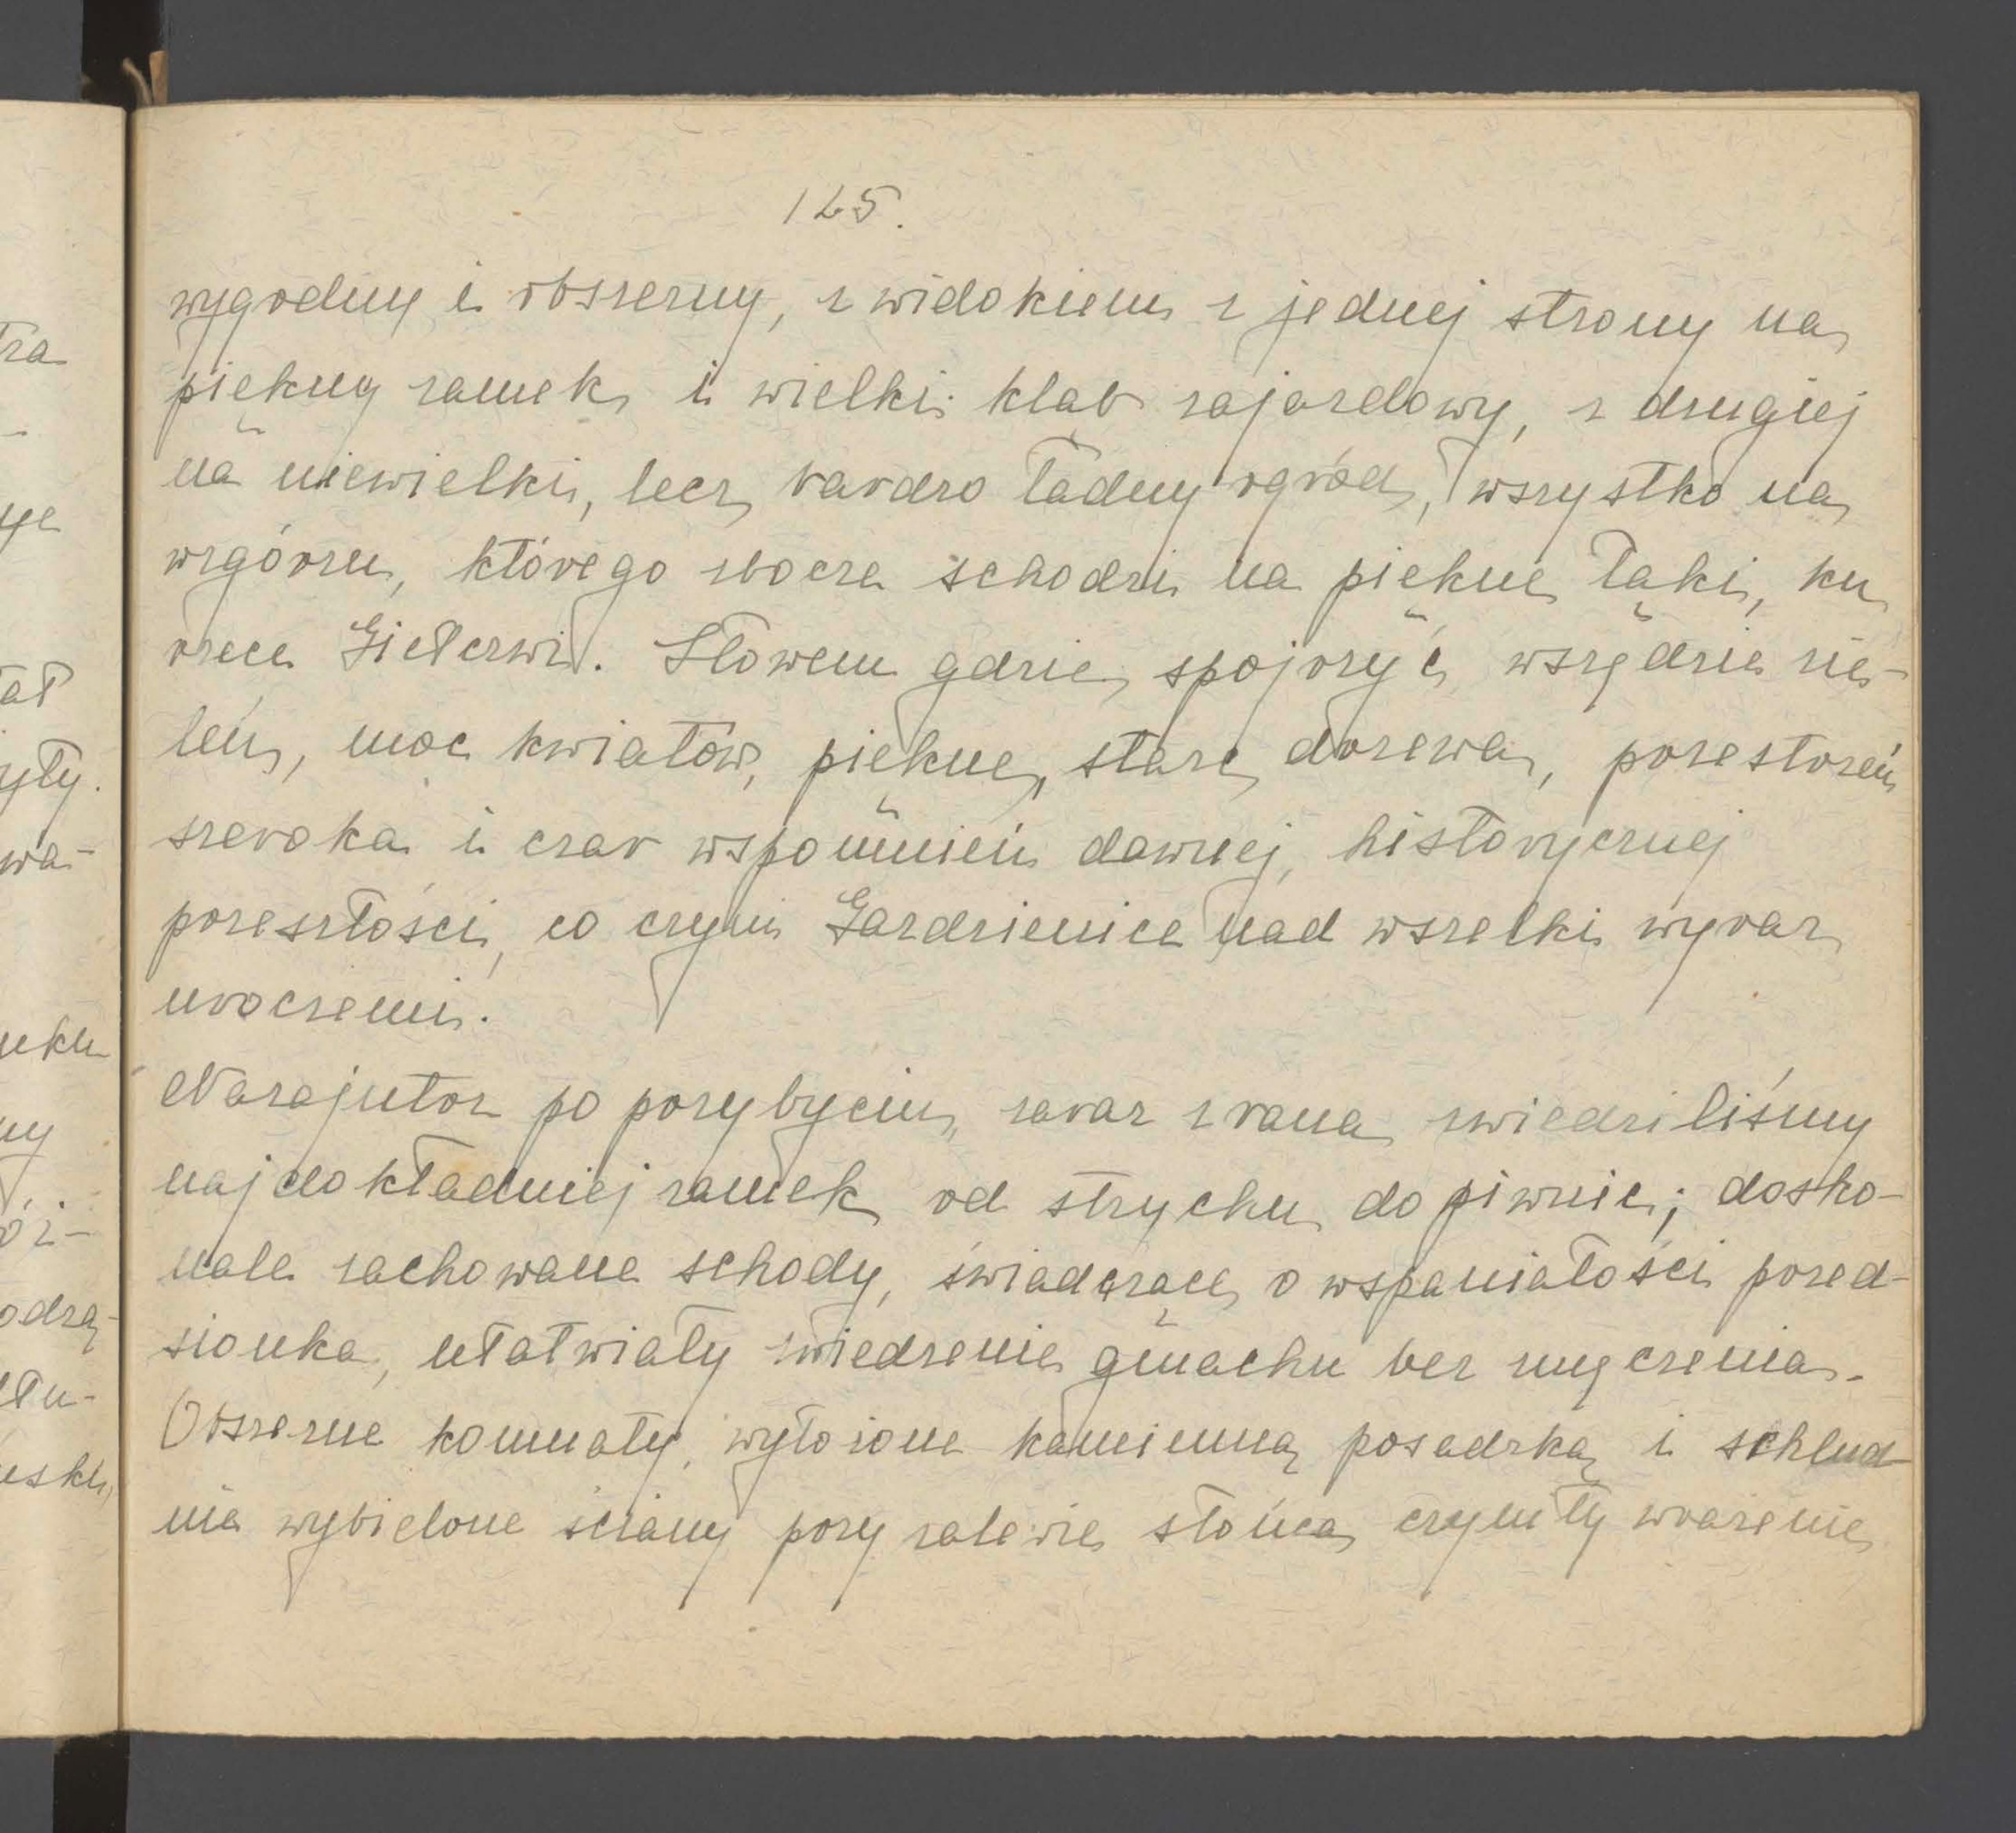 125.
wygodny i obszerny, z widokiem z jednej strony na
piękny zamek i wielki kląb zajazdowy, z drugiej
na niewielki, lecz bardzo ładny ogród, wszystko na
wzgórzu, którego zbocza schodzi na piękne łąki, ku
rzece Giełczwi. Słowem gdzie spojrzyć, wszędzie zie-
leń, moc kwiatów, piękne, stare drzewa, przestrzeń
szeroka i czar wspomnień dawnej, historycznej
przeszłości, co czyni Gardzienice nad wszelki wyraz
uroczemi.
Nazajutrz po przybyciu, zaraz z rana zwiedziliśmy
najdokładniej zamek od strychu do piwnic; dosko-
nale zachowane schody, świadczące o wspaniałości przed-
sionka, ułatwiały zwiedzenie gmachu bez zmęczenia.
Obszerne komnaty, wyłożone kamienną posadzką i schlud-
nie wybielone ściany przy zalewie słońca czyniły wrażenie